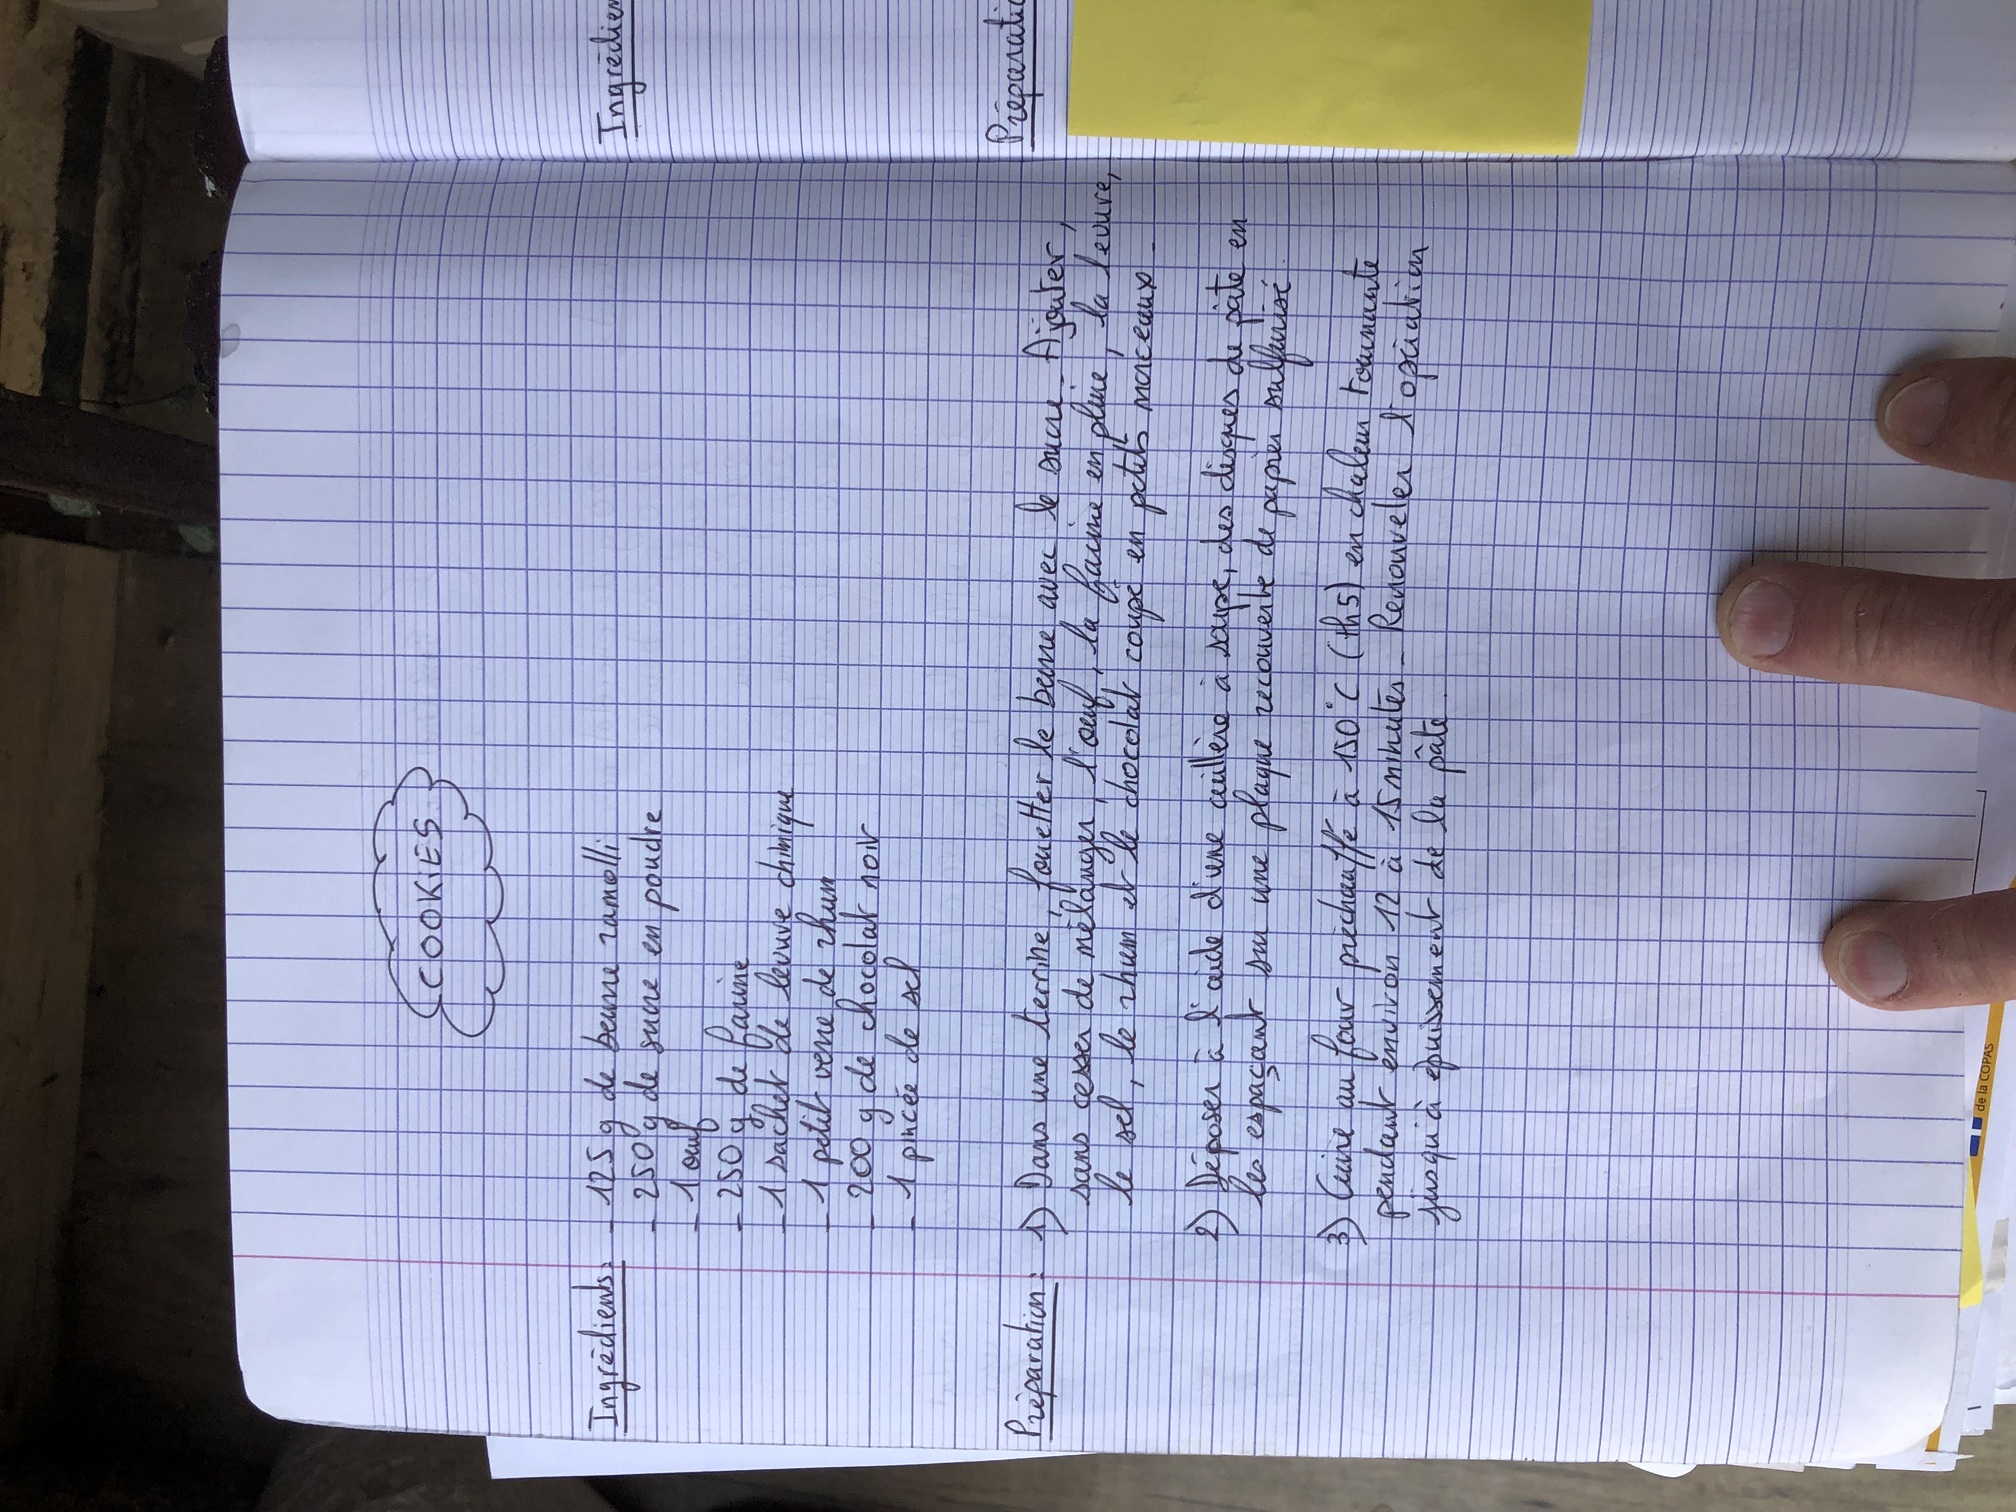 COOKIES
Ingrédients: - 125 g de beurre ramolli
- 250 g de sucre en poudre
- 1 œuf
- 250 g de farine
- 1 sachet de levure chimique
- 1 petit verre de rhum
- 200 g de chocolat noir
- 1 pincée de sel
Préparation: 1) Dans une terrine, fouetter le beurre avec le sucre. Ajouter,
sans cesser de mélanger, l'œuf, la farine en pluie, la levure,
le sel, le rhum et le chocolat coupé en petits morceaux.
2) Déposer à l'aide d'une cuillère à soupe, des disques de pâte en
les espaçant sur une plaque recouverte de papier sulfurisé.
3) Cuire au four préchauffé à 150°C (th5) en chaleur tournante
pendant environ 12 à 15 minutes - Renouveler l'opération
jusqu'à épuisement de la pâte.
Ingrédien
Préparati
de la COPAS